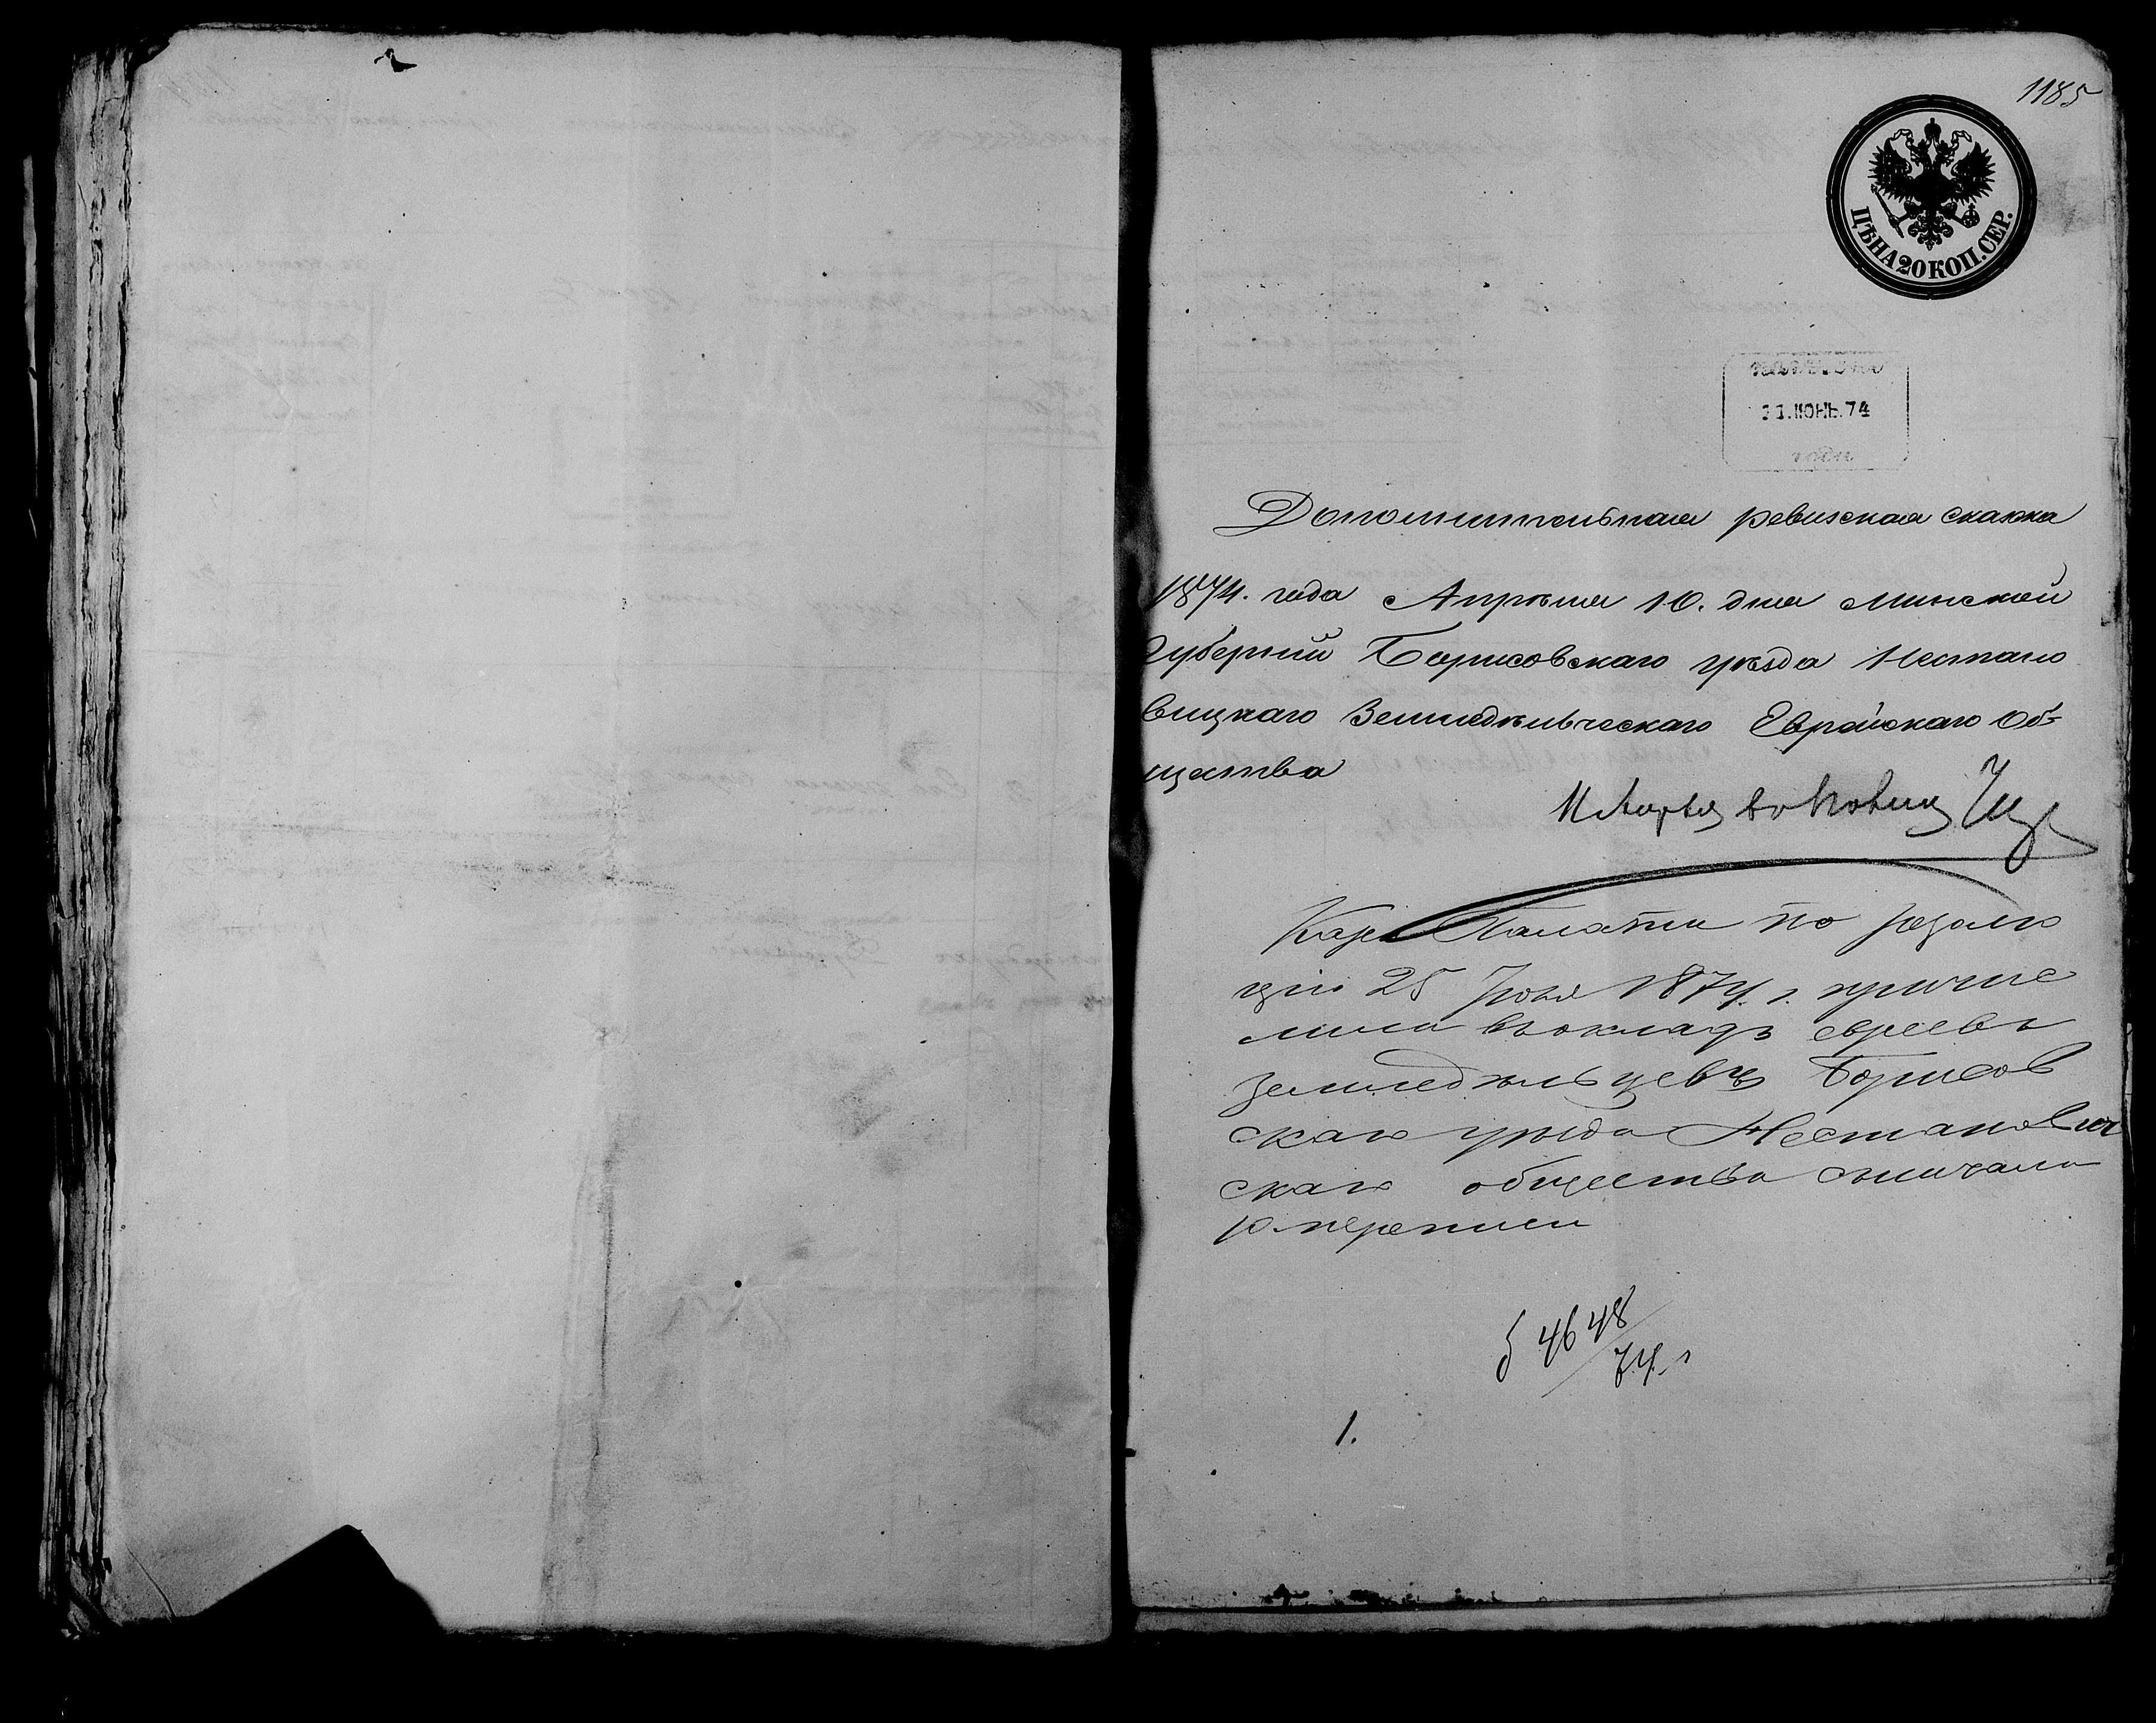 1185
ЦѢНА 20 КОП. СЕР.
ИЮНЬ.74
года
Дополнительная ревизская сказка
1874. года Апрѣля 10. дня Минской
Губерніи Борисовскаго уѣзда Нестано
вицкаго Земледѣльческаго Еврейскаго Об-
щества
Каз. Палаты по резолю
ціи 25 1874. г. причис
лила въ окладъ евреевъ
земледѣльцевъ Борисов
скаго уѣзда Нестанович
скаго общества
10. переписи
§ 4648/74. г
1.